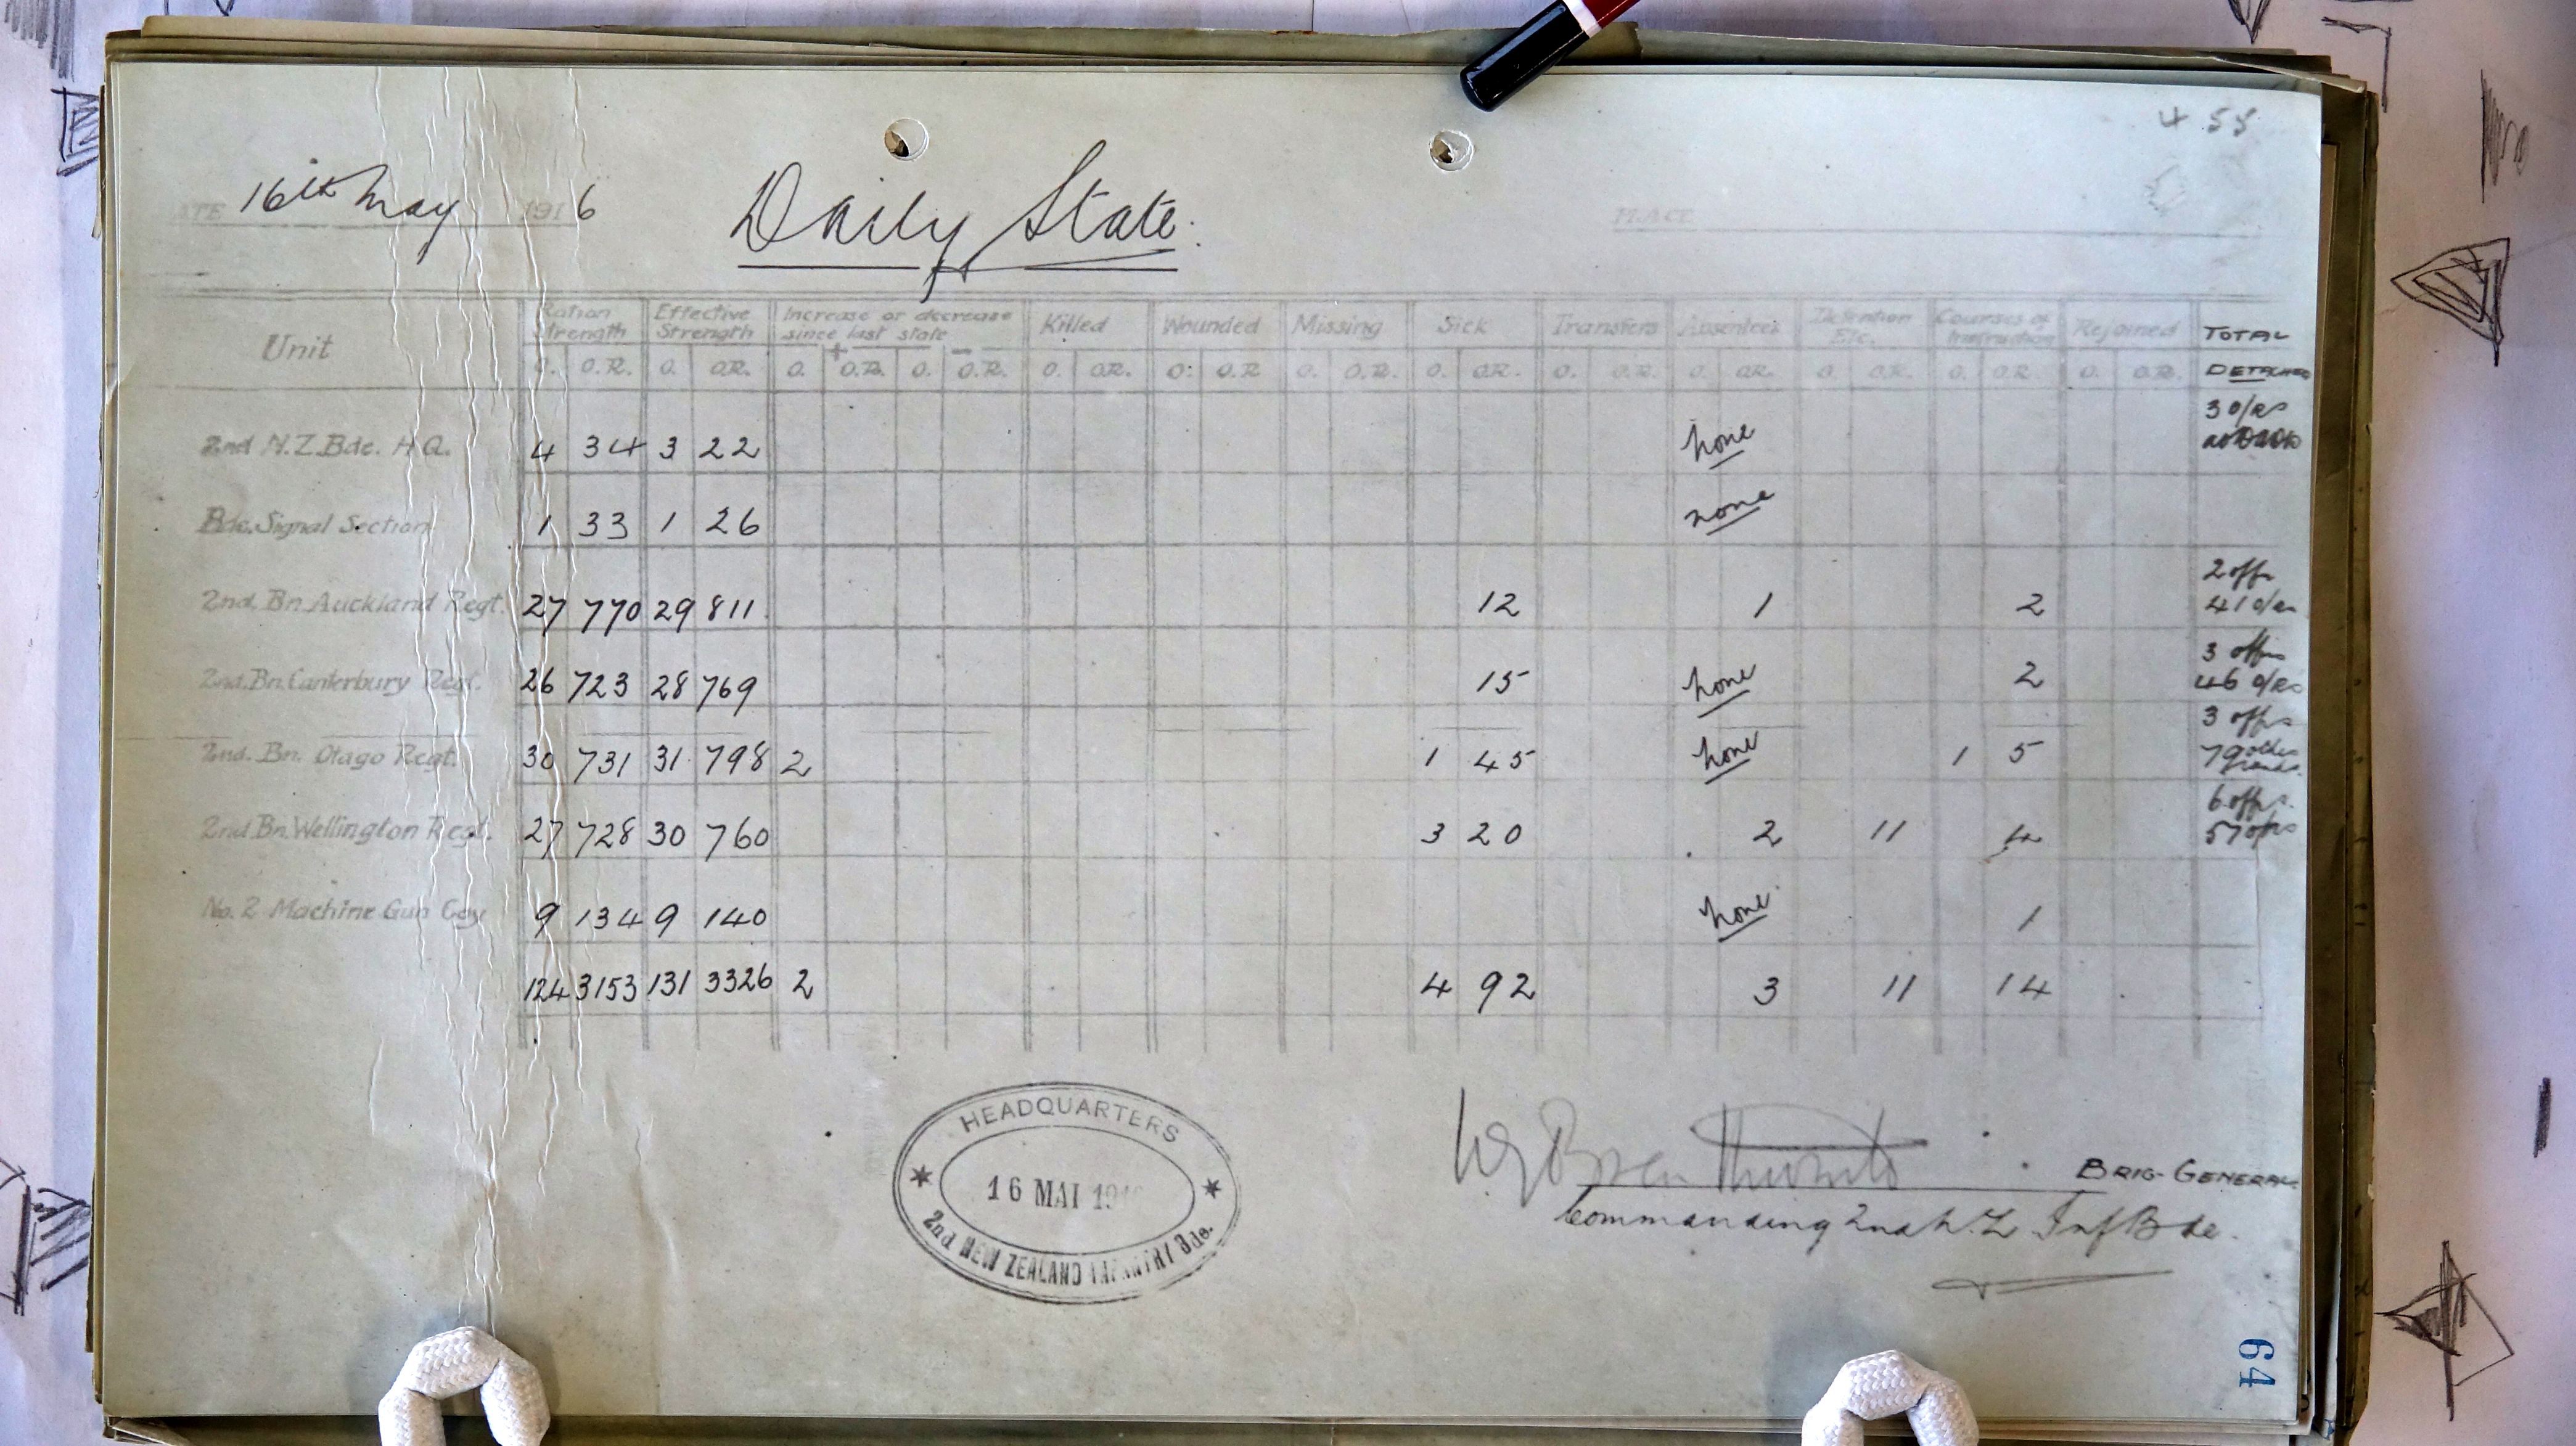 4 55
DATE 16th May 1916
Daily State.
Unit | Ration Strength | Effective Strength | Increase or decrease since last state + − | Killed | Wounded | Missing | Sick | Transfers | Absentees | Detention Etc. | Courses of Instruction | Rejoined | TOTAL DETACHED
O. O.R. O. O.R. O. O.R. O. O.R. O. O.R. O. O.R. O. O.R. O. O.R. O. O.R. O. O.R. O. O.R. O. O.R. O. O.R.
2nd N.Z. Bde. H.Q. 4 34 3 22 none 3 o/rs
Bde. Signal Section 1 33 1 26 none
2nd. Bn. Auckland Regt. 27 770 29 811 12 1 2 2 offs 41 o/rs
2nd. Bn. Canterbury Regt. 26 723 28 769 15 none 2 3 offrs 46 o/rs
2nd. Bn. Otago Regt. 30 731 31 798 2 1 45 none 1 5 3 offrs 79 other ranks
2nd Bn. Wellington Regt. 27 728 30 760 3 20 2 11 4 6 offrs. 57
No. 2 Machine Gun Coy 9 134 9 140 none 1
124 3153 131 3326 2 4 92 3 11 14
HEADQUARTERS
16 MAI 191
2nd NEW ZEALAND INFANTRY Bde.
BRIG-GENERAL
Commanding 2nd N.Z Inf Bde.
64